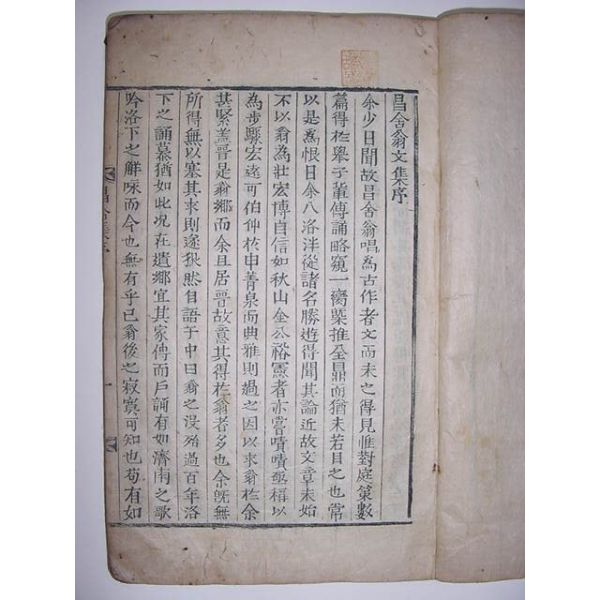 昌舍翁文集序
余少日聞故昌舍翁唱為古作者文而未之得見惟對庭策數
篇得於舉子輩傳誦略窺一臠槩推全鼎而猶未若目之也常
以是為恨日余入洛洋從諸名勝遊得聞其論近故文章未始
不以翁為壯宏博自信如秋山金公裕憲者亦嘗嘖嘖亟稱以
為步驟宏遠可伯仲於申菁泉而典雅則過之因以來翁於余
甚緊盖晉是翁鄉而余且居晉故意其得於翁者多也余旣無
所得無以塞其求則遂犾然自語于中曰翁之沒殆過百年洛
下之誦慕猶如此况在遺鄉宜其家傳而戶誦有如濟南之歌
吟洛下之觧味而今也無有乎已翁後之寂寞可知也苟有如
昌舍集序
一